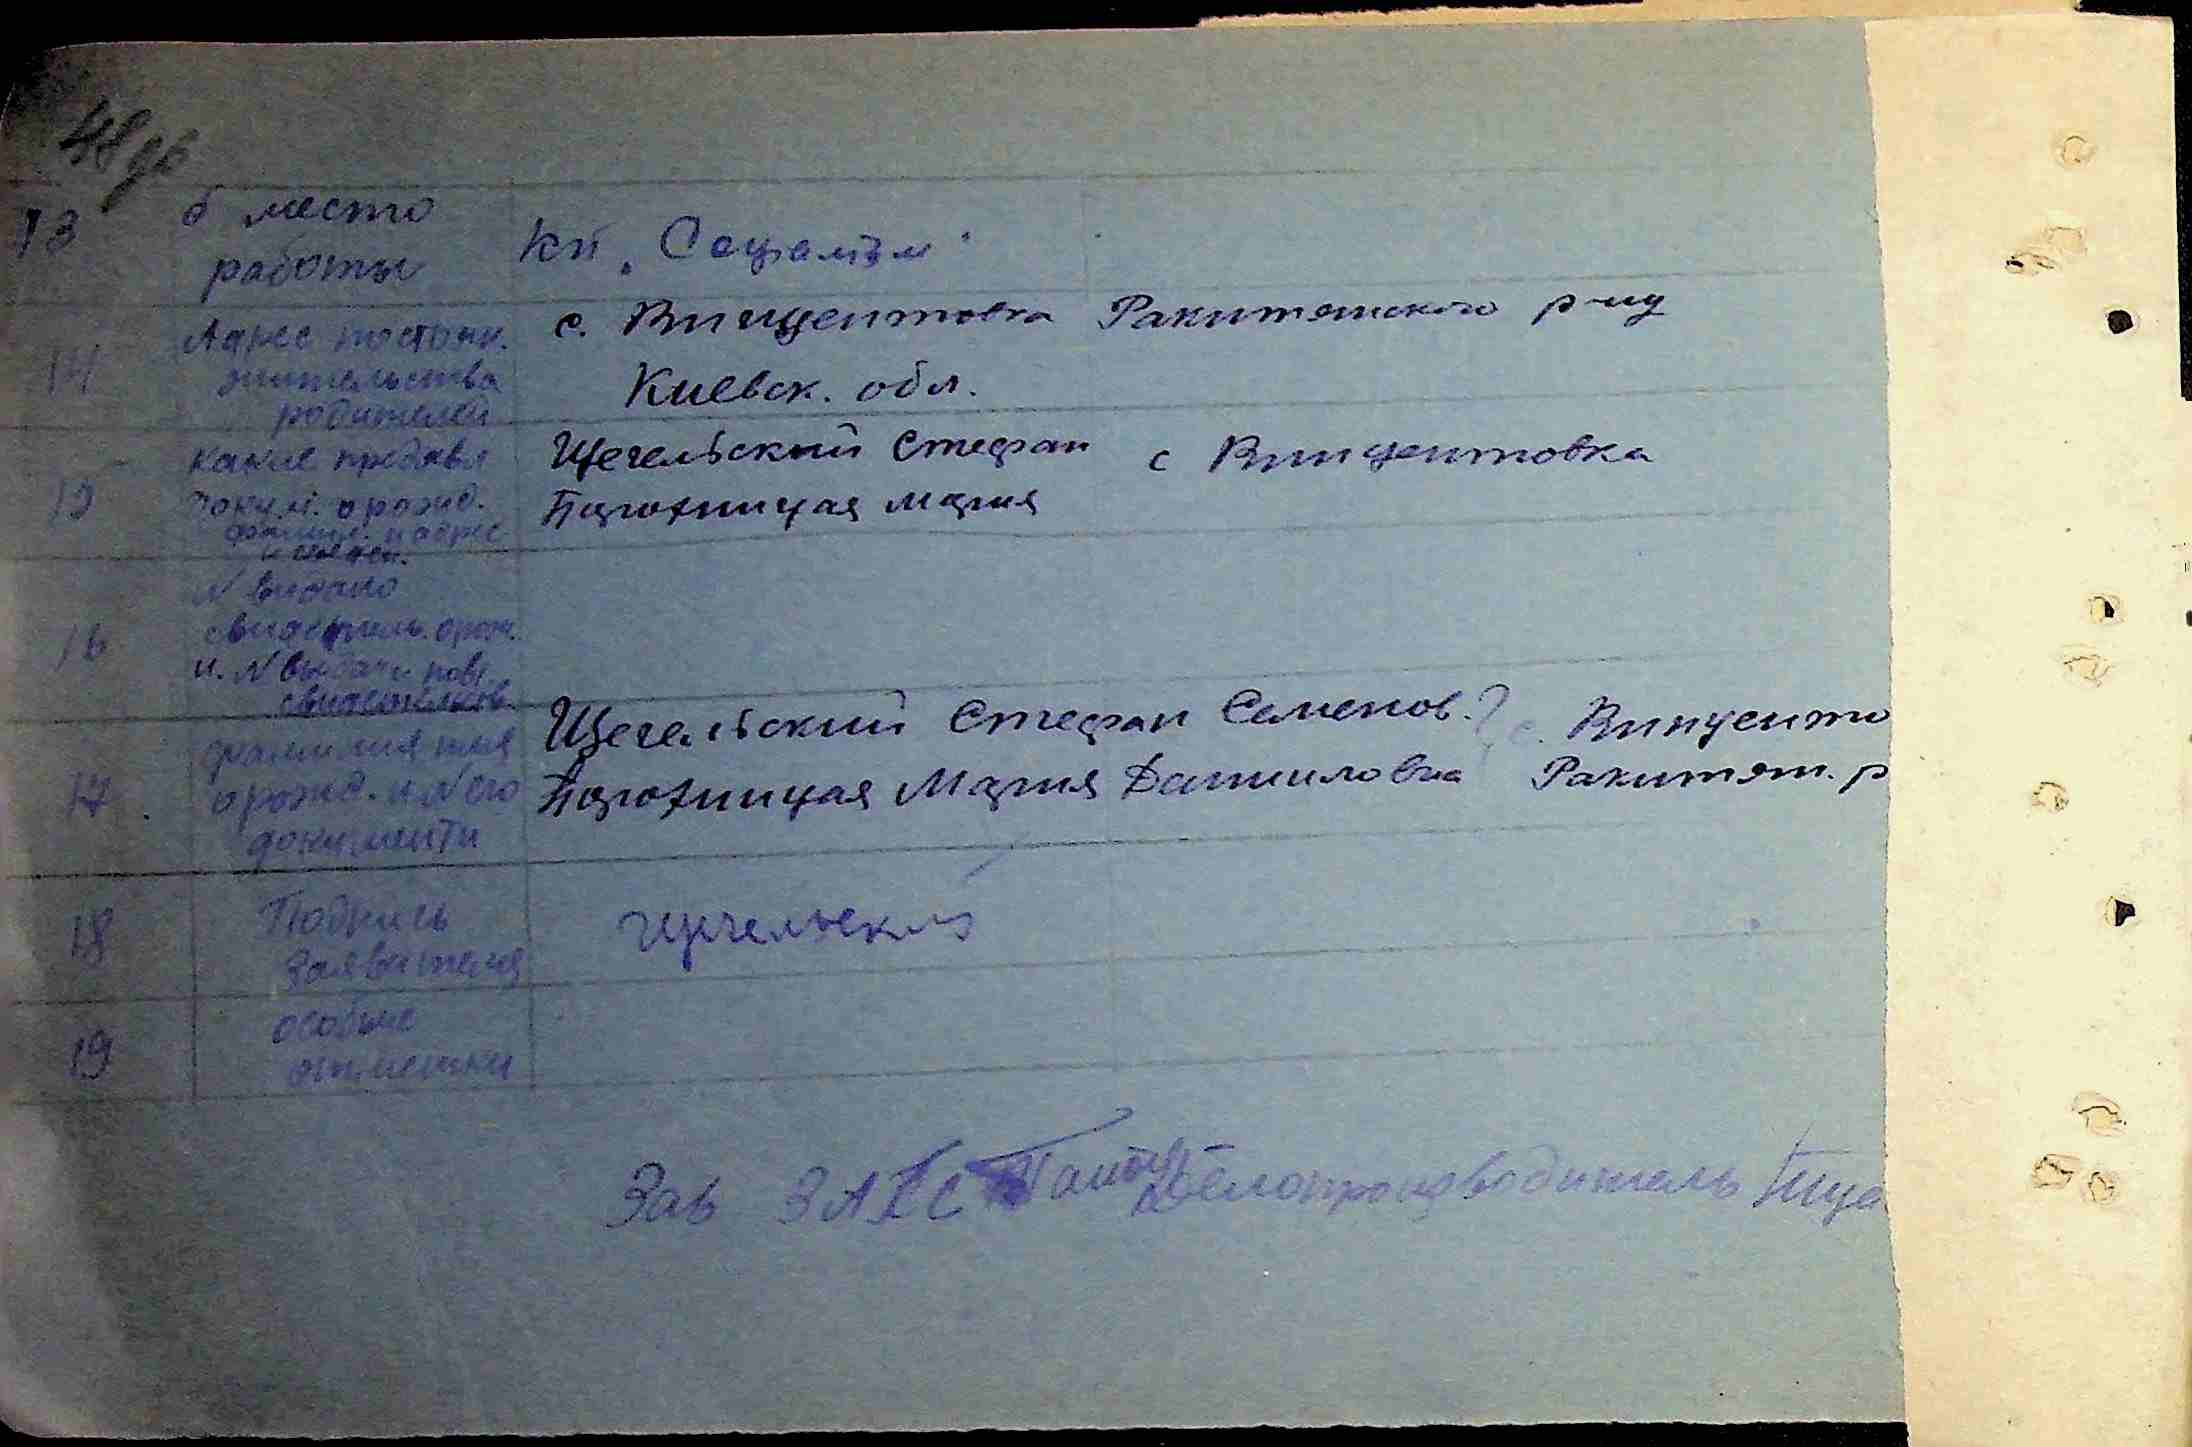 48 об
13 б место
работы
Кп „Соціалізм“
14 Адрес постоян.
жительства
родителей
с. Винцентовка Ракитянского р-ну
Киевск. обл.
15 Какие предъявл
докум. о рожд.
фамил. и адрес
Щегельский Стефан с Винцентовка
Мария
16 N видано
свидетель. о рож.
и. N выдачи повт.
свидетельств.
17 фамилия имя
о рожд. и N его
документи
Щегельский Стефан Семенов. ? с. Винценто
Мария Даниловна Ракитян. р
18 Подпись
Заявителя
Щегельский
19 особые
отметки
Зав ЗАГС Делопроизводитель